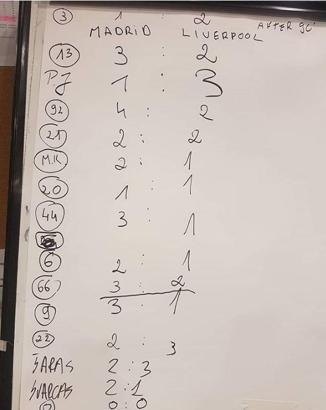 3 1 : 2
MADRID LIVERPOOL AFTER 90'
13 3 : 2
PJ 1 : 3
92 4 : 2
21 2 : 2
M.K 2 : 1
20 1 : 1
44 3 : 1
6 2 : 1
66 3 : 2
9 3 : 1
22 2 : 3
ŠARAS 2 : 3
ŠVARCAS 2 : 1
0 : 0